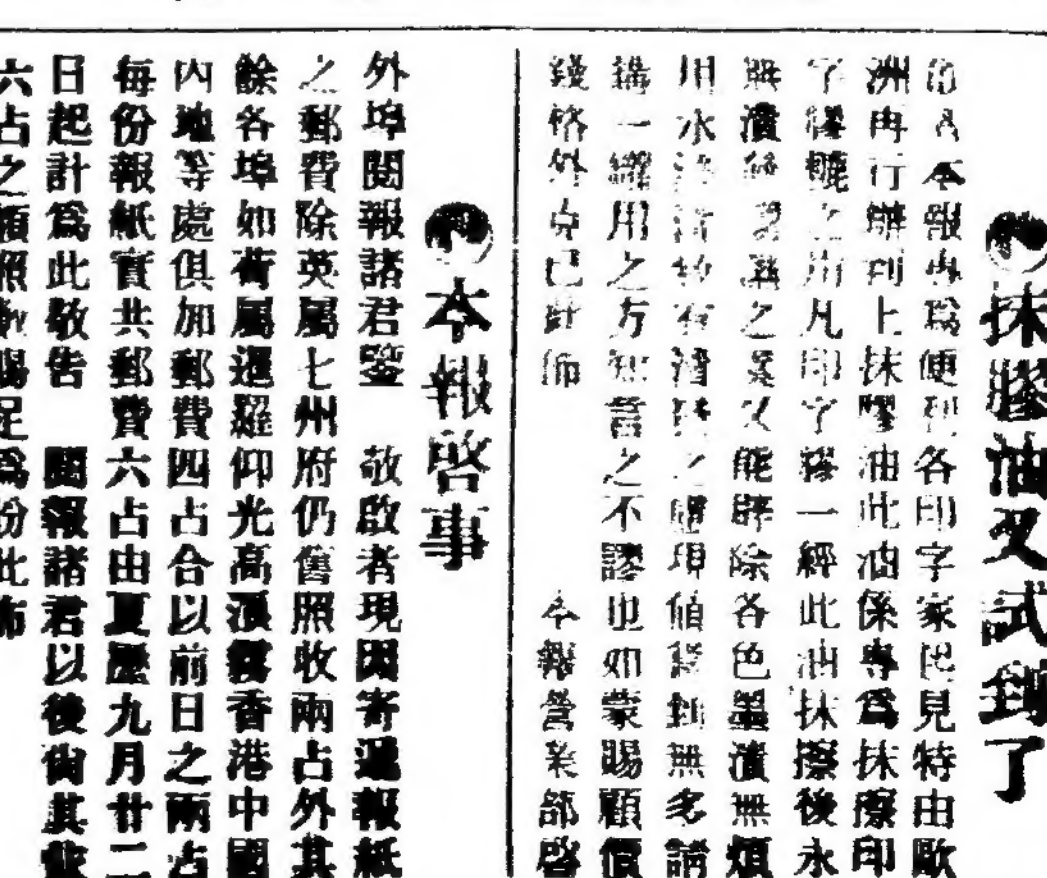 抹膠油又試到了
本報專爲便利各印字家起見特由歐
洲再行辦到上抹膠油此油係專爲抹擦印
字膠轆之用凡印字膠一經此油抹擦後永
無漬之又能辟除各色墨漬無煩
用水之現值貨到無多請
購一罐用之方知言之不謬也如蒙賜顧價
錢格外克己此佈 本報營業部啓
本報啓事
外埠閱報諸君鑒 敬啟者現因寄遞報紙
之郵費除英屬七州府仍舊照收兩占外其
餘各埠如荷屬暹羅仰光高香港中國
內地等處俱加郵費四占合以前日之兩占
每份報紙實共郵費六占由夏歷九月廿二
日起計爲此敬告 閱報諸君以後付其
六占之額照數賜足爲份此佈